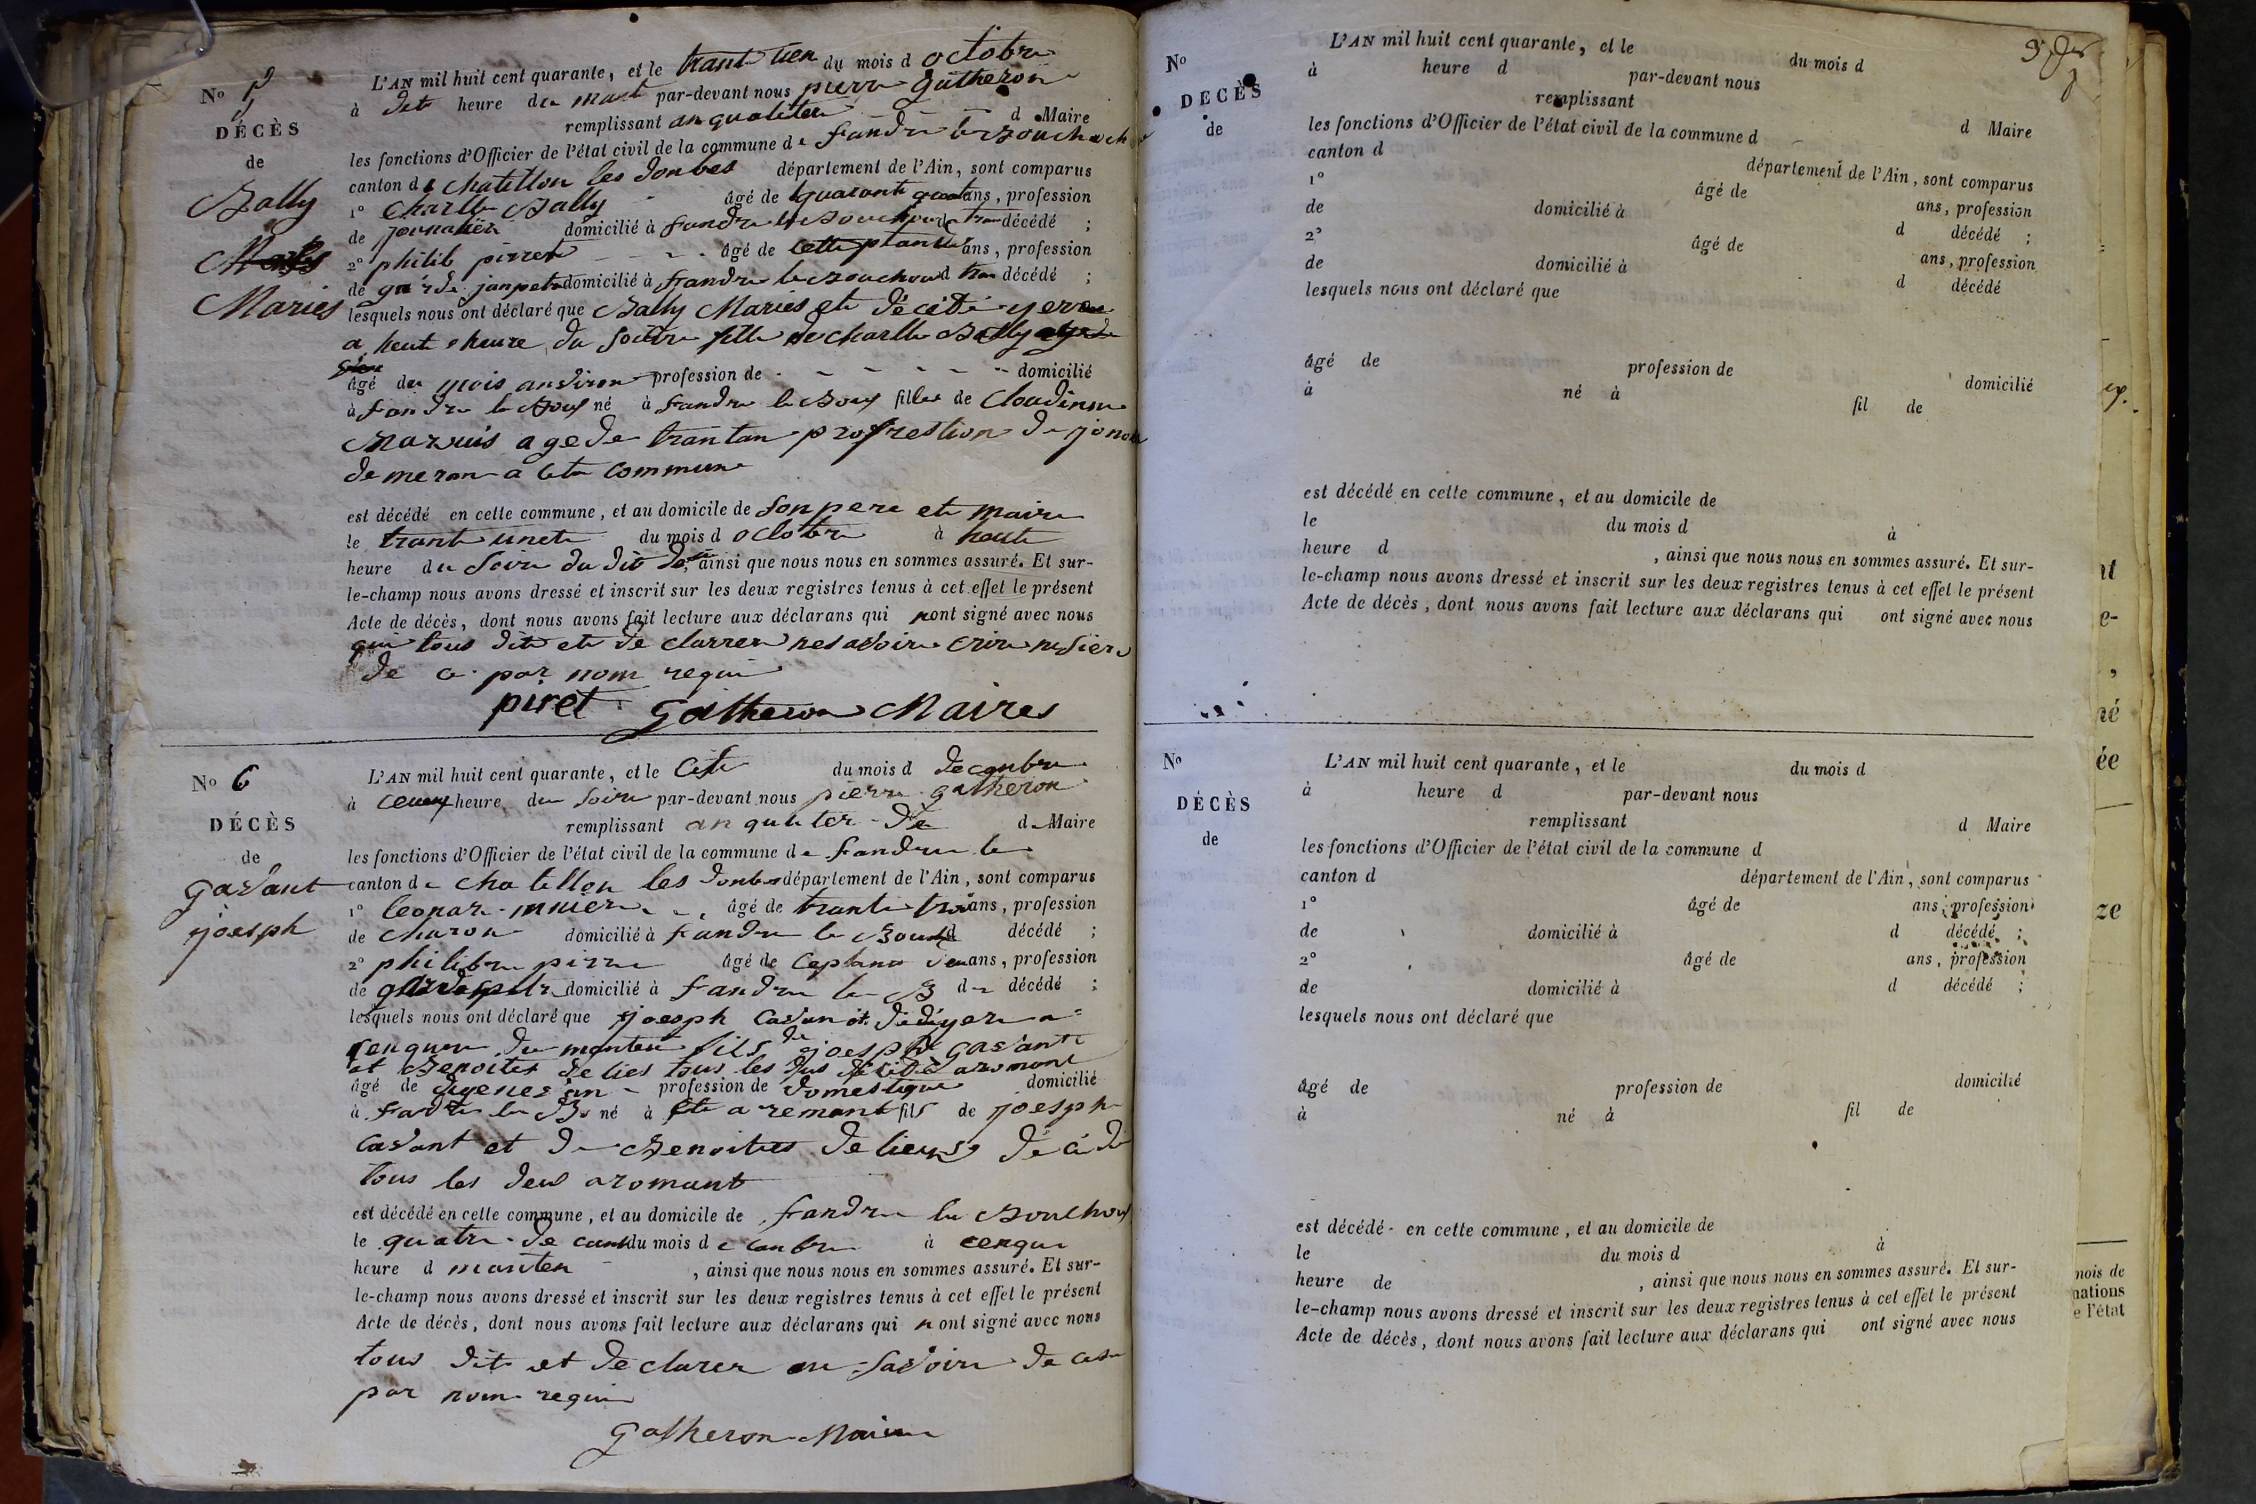 No 5
DÉCÈS
de
Bally
Maries
L'AN mil huit cent quarante, et le trant uen du mois d octobre
à dit heure du mast par-devant nous pierre gatheron
remplissant an qualiter d Maire
les fonctions d'Officier de l'état civil de la commune de fandre le Bouchoch
canton de Chatillon les donbes département de l'Ain, sont comparus
1º Charlle Bally âgé de quarante quat ans, profession
de journalier domicilié à fandre le Bouchoud décédé ;
2º philib pirret âgé de ans, profession
de garde janpetr domicilié à fandre le Bouchoud décédé ;
lesquels nous ont déclaré que Bally Maries et décédé yere
a heut heure du soire fille de Charlle Bally
âgé de mois anviron profession de domicilié
à fandre le Bouf né à fandre le Bouf filles de Cloudinne
Maruis age de trantan profrestion de
de meran a cete commune
est décédé en cette commune, et au domicile de son pere et maire
le trant unet du mois d octobre à heute
heure du soire du dit, ainsi que nous nous en sommes assuré. Et sur-
le-champ nous avons dressé et inscrit sur les deux registres tenus à cet effet le présent
Acte de décès, dont nous avons fait lecture aux déclarans qui nont signé avec nous
qui tous dit et de clarrer ne savoire crire
de ce par nom requi
piret gatheron Maires
No 6
DÉCÈS
de
gavant
joesph
L'AN mil huit cent quarante, et le du mois d decanbre
à heure du soire par-devant nous pierre gatheron
remplissant an qualiter de d Maire
les fonctions d'Officier de l'état civil de la commune de fandre le
canton de chatellon les donbes département de l'Ain, sont comparus
1º leonar mnier âgé de trante trois ans, profession
de charon domicilié à fandre le Bouch d décédé ;
2º philibre pirre âgé de ceptant deu ans, profession
de domicilié à fandre le B de décédé ;
lesquels nous ont déclaré que joesph Cavan et dédé yere a
cenqueure du manten fils de joesph gavant
et Benoites de lies tous les dus décédé aromont
âgé de an profession de domestique domicilié
à fandre le B né à a remont fils de joesph
cavant et de Benoites de lieurs décédé
tous les deus aromant
est décédé en cette commune, et au domicile de fandre le Bouchou
le quatre de du mois de canbre à cenque
heure d manten, ainsi que nous nous en sommes assuré. Et sur-
le-champ nous avons dressé et inscrit sur les deux registres tenus à cet effet le présent
Acte de décès, dont nous avons fait lecture aux déclarans qui nont signé avec nous
tous dit et declarer ne savoire de ce
par nom requi
gatheron Maire
No
DÉCÈS
de
L'AN mil huit cent quarante, et le du mois d
à heure d par-devant nous
remplissant d Maire
les fonctions d'Officier de l'état civil de la commune d
canton d département de l'Ain, sont comparus
1º âgé de ans, profession
de domicilié à d décédé ;
2º âgé de ans, profession
de domicilié à d décédé
lesquels nous ont déclaré que
âgé de profession de domicilié
à né à fil de
est décédé en cette commune, et au domicile de
le du mois d à
heure d , ainsi que nous nous en sommes assuré. Et sur-
le-champ nous avons dressé et inscrit sur les deux registres tenus à cet effet le présent
Acte de décès, dont nous avons fait lecture aux déclarans qui ont signé avec nous
No
DÉCÈS
de
L'AN mil huit cent quarante, et le du mois d
à heure d par-devant nous
remplissant d Maire
les fonctions d'Officier de l'état civil de la commune d
canton d département de l'Ain, sont comparus
1º âgé de ans, profession
de domicilié à d décédé ;
2º âgé de ans, profession
de domicilié à d décédé ;
lesquels nous ont déclaré que
âgé de profession de domicilié
à né à fil de
est décédé en cette commune, et au domicile de
le du mois d à
heure de , ainsi que nous nous en sommes assuré. Et sur-
le-champ nous avons dressé et inscrit sur les deux registres tenus à cet effet le présent
Acte de décès, dont nous avons fait lecture aux déclarans qui ont signé avec nous